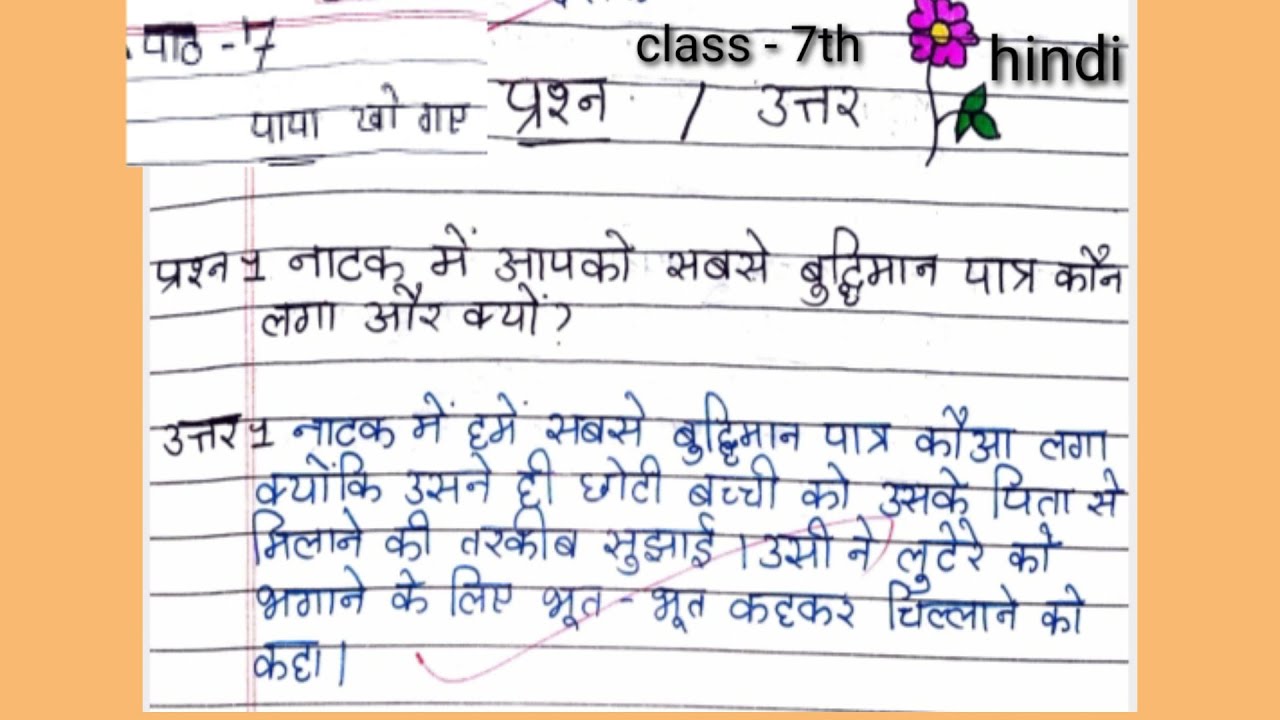 पाठ - 7
class - 7th
hindi
पापा खो गए
प्रश्न / उत्तर
प्रश्न 1 नाटक में आपको सबसे बुद्धिमान पात्र कौन
लगा और क्यों?
उत्तर 1 नाटक में हमें सबसे बुद्धिमान पात्र कौआ लगा
क्योंकि उसने ही छोटी बच्ची को उसके पिता से
मिलाने की तरकीब सुझाई । उसी ने लुटेरे को
भगाने के लिए भूत - भूत कहकर चिल्लाने को
कहा ।